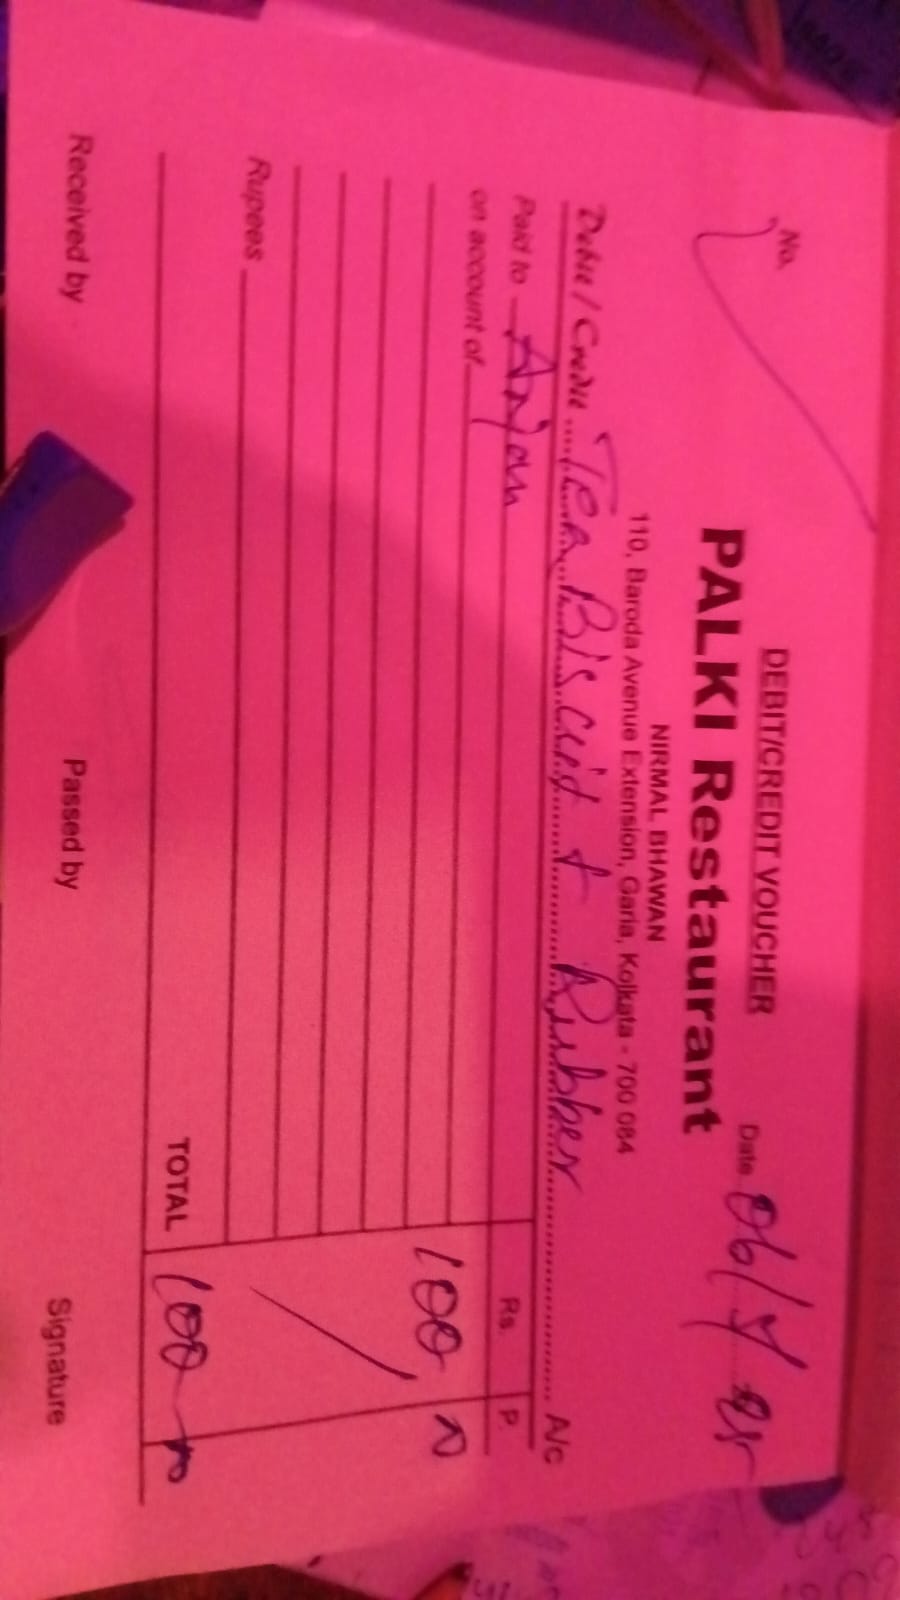 DEBIT/CREDIT VOUCHER
No. Date 06/7/25
PALKI Restaurant
NIRMAL BHAWAN
110, Baroda Avenue Extension, Garia, Kolkata - 700 084
Debit / Credit Tea Biscuit + Rubber A/c
Paid to Anjan Rs. P.
on account of 100
Rupees
TOTAL 100
Received by Passed by Signature